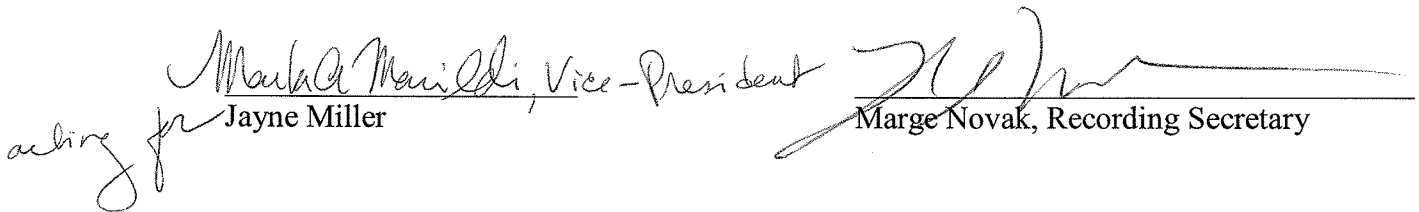 Vice-President
acting for Jayne Miller
Marge Novak, Recording Secretary